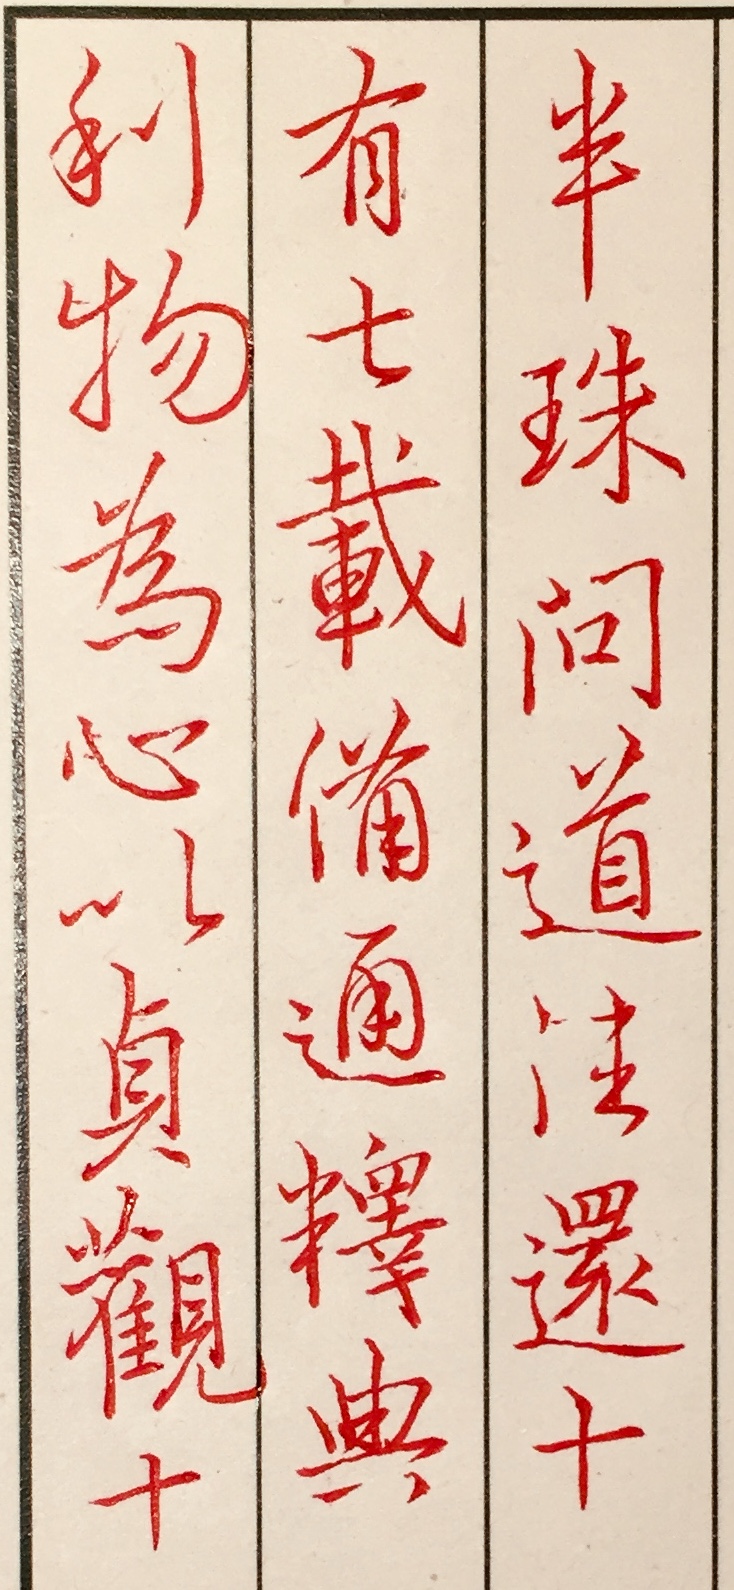 半珠問道往還十
有七載備通釋典
利物為心以貞觀十